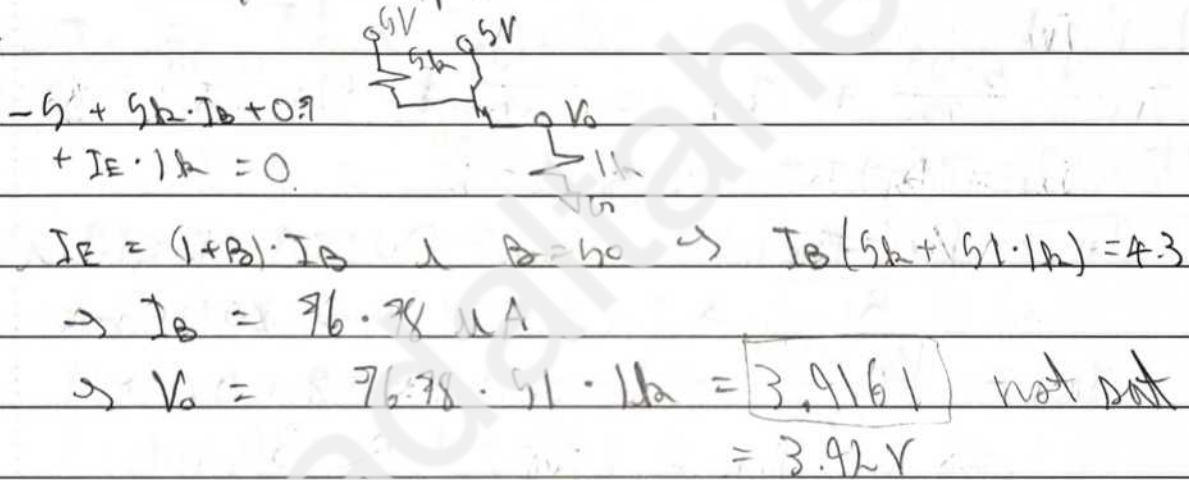 5V
5V
5k
-5 + 5k·IB + 0.7
Vo
+ IE · 1k = 0
1k
IE = (1+B)·IB B = 50 → IB(5k + 51·1k) = 4.3
→ IB = 76.78 uA
→ Vo = 76.78 · 51 · 1k = 3.9161 not sat
= 3.92 V
adaltahe